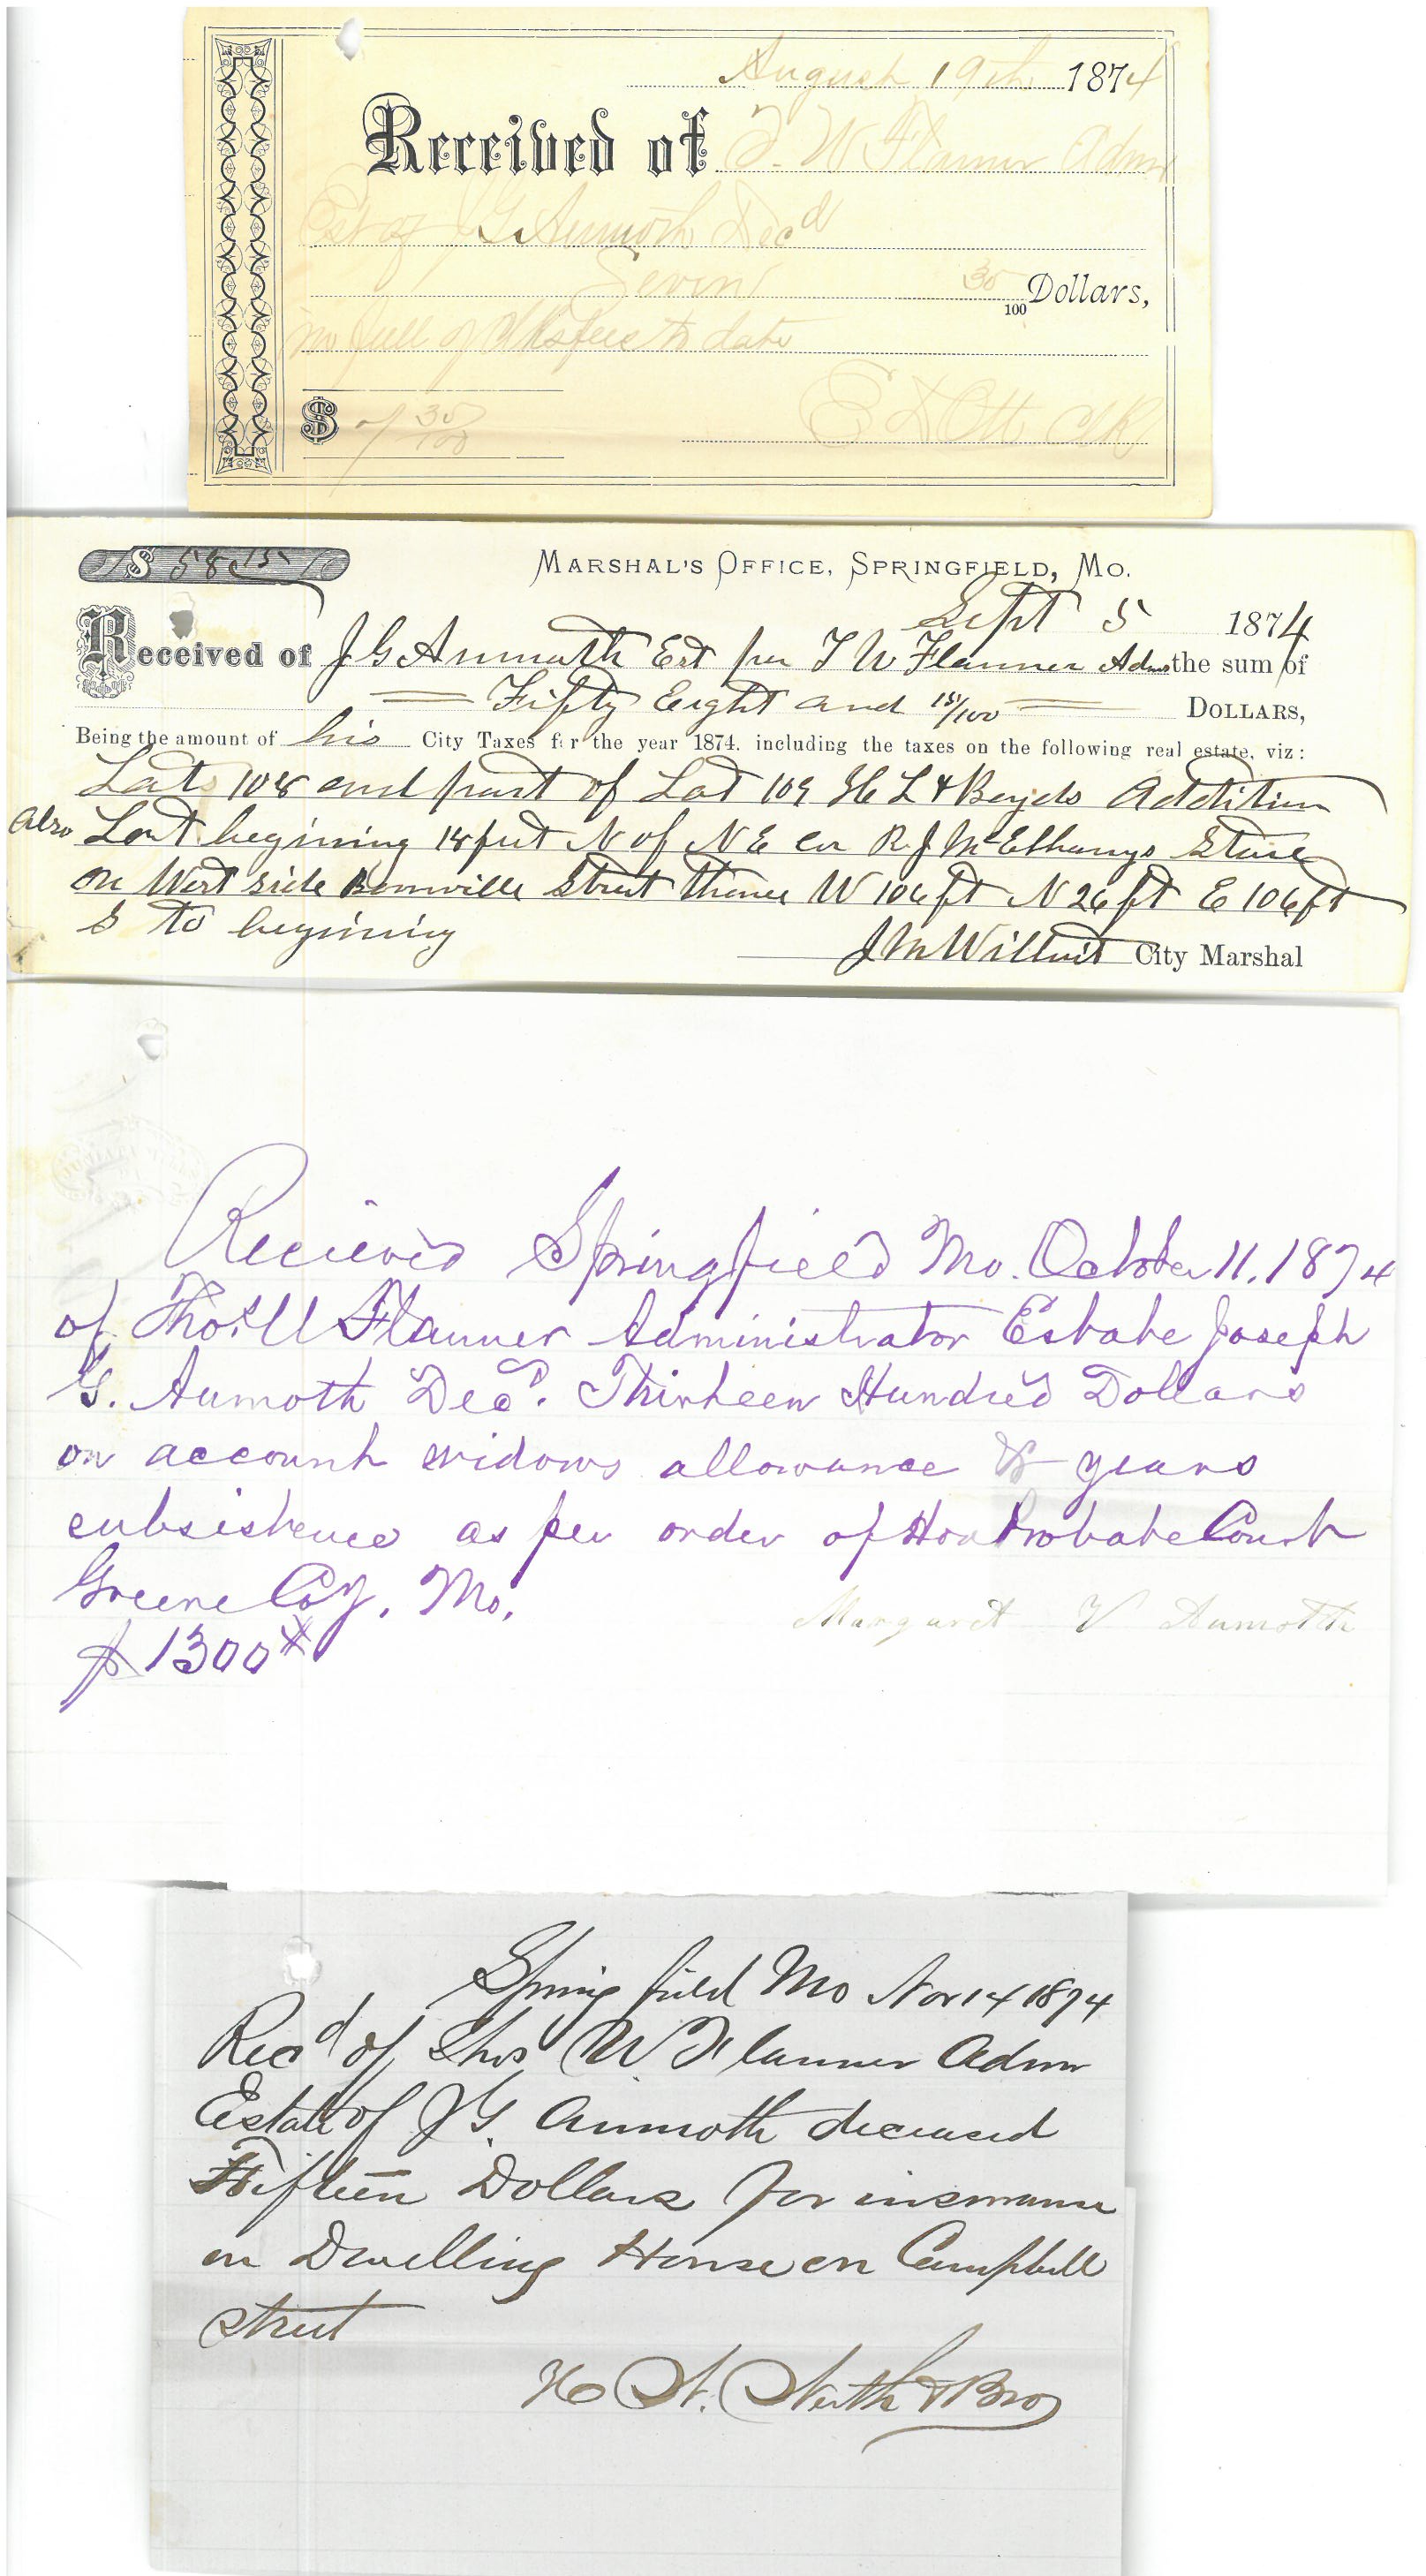 August 19th 1874
Received of T. W. Flanner Admr
Est of J G Aumoth Decd
Seven 35/100 Dollars,
in full of Clks fees to date
$ 7 35/100 E D Ott Clk
$ 58 15 MARSHAL'S OFFICE, SPRINGFIELD, MO.
Sept 5 1874
Received of J G Aumoth Est per T W Flanner Admr the sum of
Fifty Eight and 15/100 DOLLARS,
Being the amount of his City Taxes for the year 1874, including the taxes on the following real estate, viz:
Lots 108 and part of Lot 109 Boyds Addition
Also Lot begining 18 feet N of N E cor R. J. McElhanys Store
on West side Boonville Street thence W 106 ft N 26 ft E 106 ft
S to begining
J M City Marshal
Recieved Springfield Mo. October 11. 1874
of Thos. W Flanner Administrator Estate Joseph
G. Aumoth Decd. Thirteen Hundred Dollars
on account widows allowance & years
subsistence as per order of Hon Probate Court
Greene Coy, Mo.
Margaret V Aumoth
$1300
Springfield Mo Nov 14 1874
Recd of Thos W. Flanner Admr
Estate of J G. Aumoth deceased
Fifteen Dollars for insurance
on Dwelling House on Campbell
street
& Bro